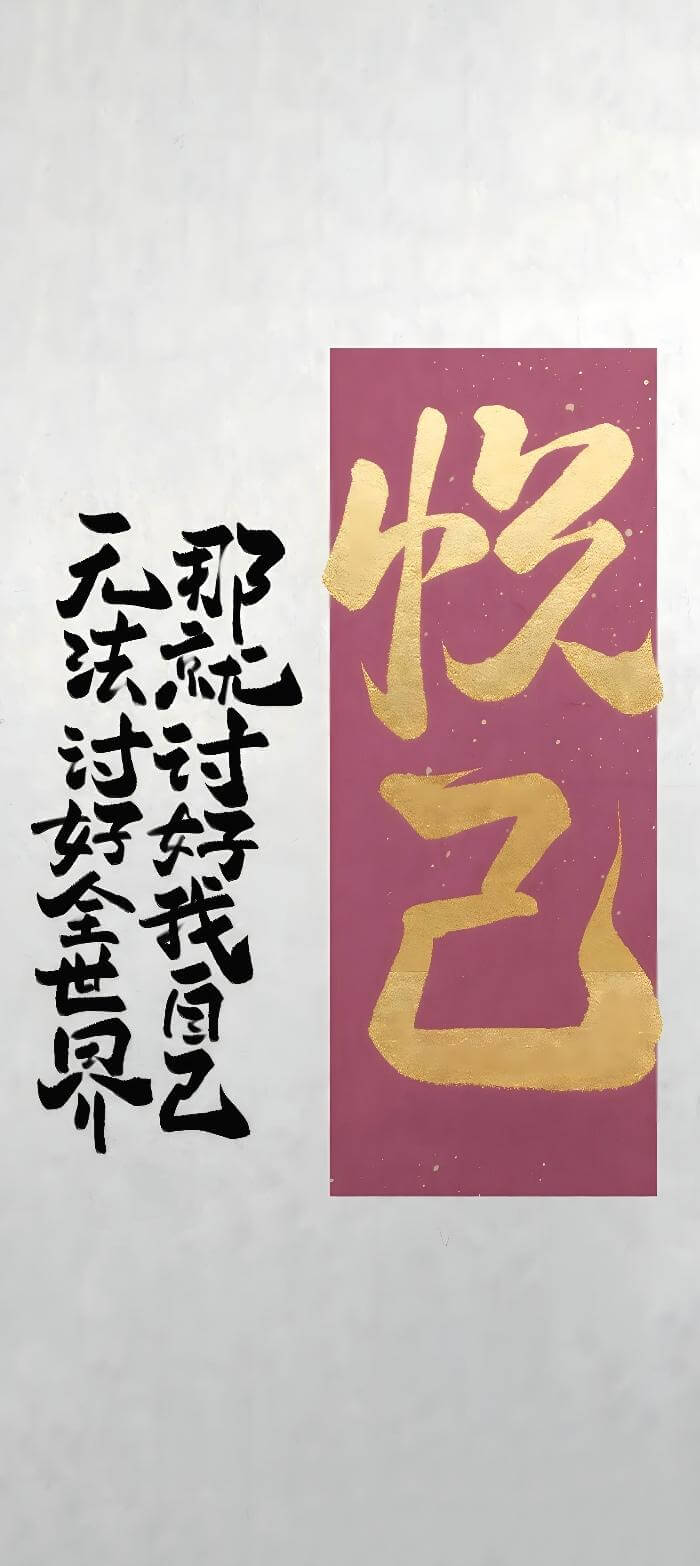 悦己
无法讨好全世界
那就讨好我自己